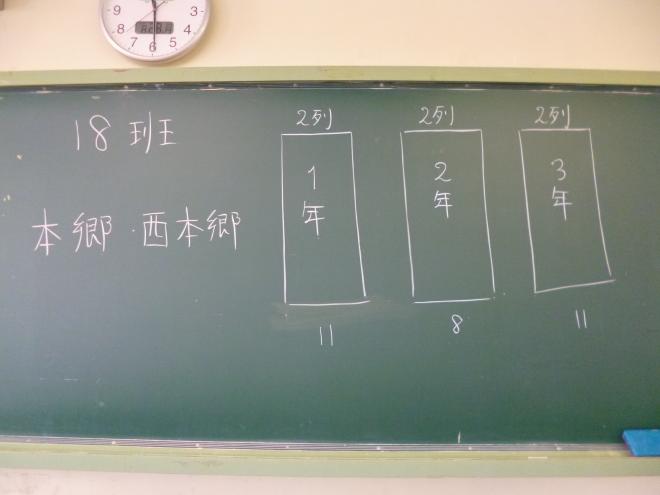 18班
本郷・西本郷
2列
1年
11
2列
2年
8
2列
3年
11
9
8
7
6
5
4
3